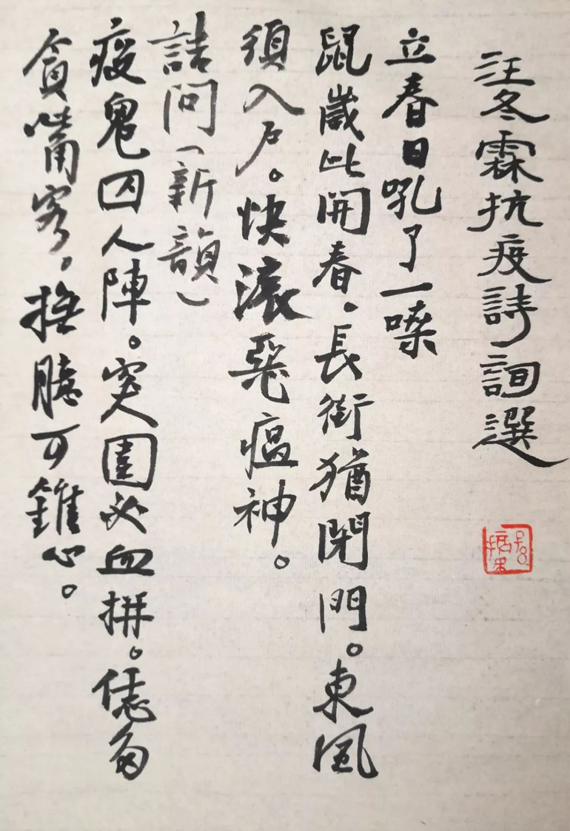 汪冬霖抗疫詩詞選
立春日吼了一嗓
鼠歲此開春，長街猶閉門。東風
須入户。快滾惡瘟神。
詰問（新韻）
疫鬼囚人陣。突圍必血拼。恁多
貪嘴客，捂臆可錐心。